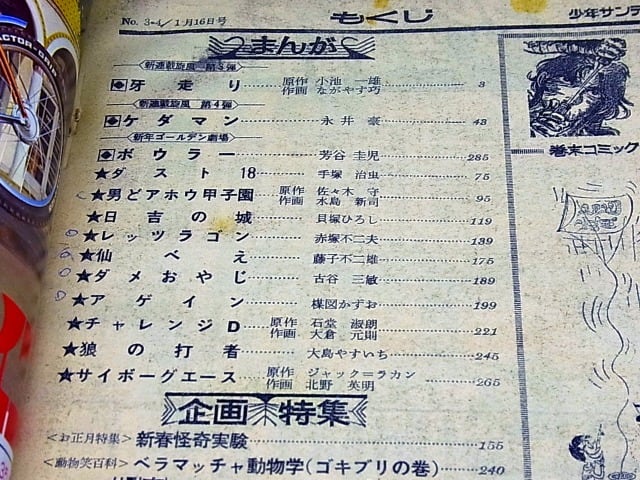 No. 3・4/1月16日号 もくじ 少年サンデ
まんが
新連載旋風 第3弾
牙走り 原作 小池一雄 作画 ながやす巧 3
新連載旋風 第4弾
ケダマン 永井豪 43
新年ゴールデン劇場
ボウラー 芳谷圭児 285
★ダスト18 手塚治虫 75
★男どアホウ甲子園 原作 佐々木守 作画 水島新司 95
★日吉の城 貝塚ひろし 119
★レッツラゴン 赤塚不二夫 139
★仙べえ 藤子不二雄 175
★ダメおやじ 古谷三敏 189
★アゲイン 楳図かずお 199
★チャレンジD 原作 石堂淑朗 作画 大倉元則 221
★狼の打者 大島やすいち 245
★サイボーグエース 原作 ジャック=ラカン 作画 北野英明 265
企画特集
<お正月特集> 新春怪奇実験 155
<動物笑百科> ベラマッチャ動物学(ゴキブリの巻) 240
巻末コミック